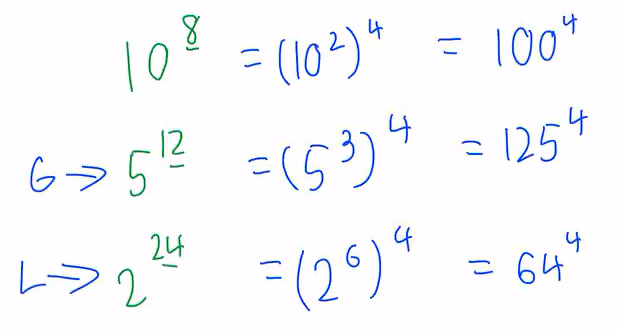 10^8 = (10^2)^4 = 100^4
G ⇒ 5^12 = (5^3)^4 = 125^4
L ⇒ 2^24 = (2^6)^4 = 64^4